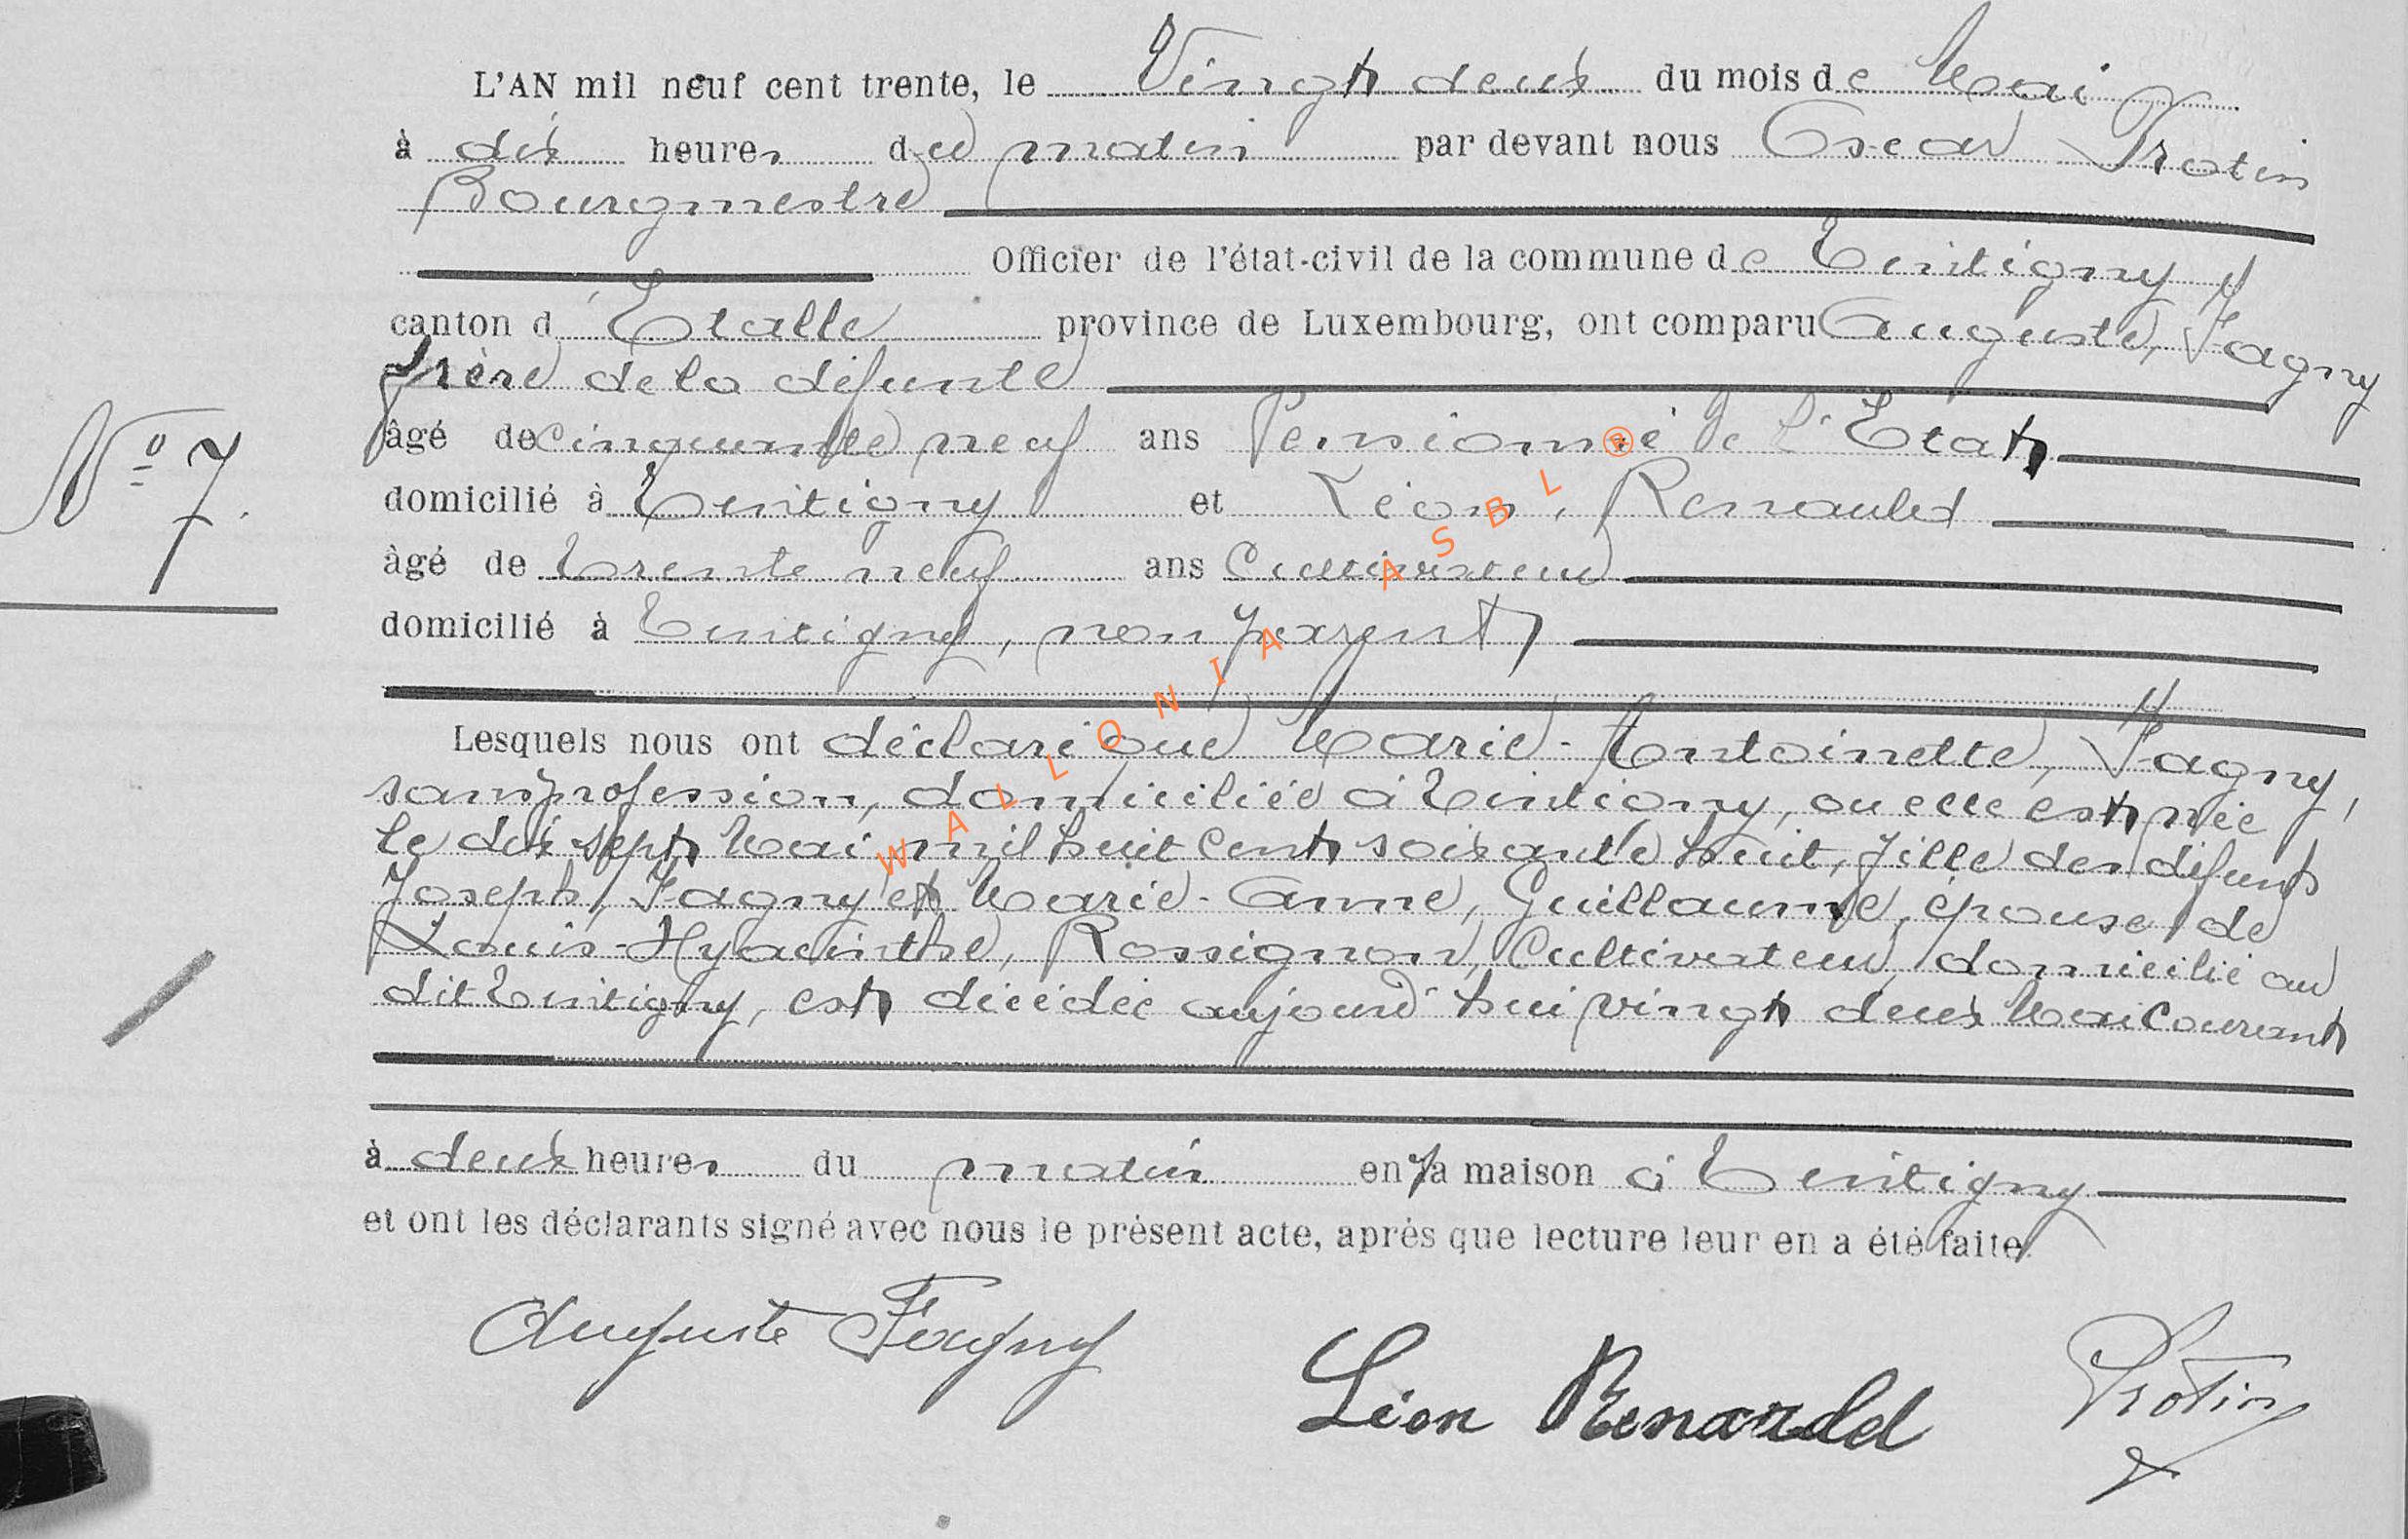 L'AN mil neuf cent trente, le Vingt deux du mois de Mai
à dix heures du matin par devant nous Oscar Protin
Bourgmestre
Officier de l'état-civil de la commune de Tintigny
canton d'Etalle province de Luxembourg, ont comparu Auguste, Fagny
frère de la défunte
âgé de cinquante neuf ans Pensionné de l'Etat
domicilié à Tintigny et Léon, Renauld
âgé de trente neuf ans Cultivateur
domicilié à Tintigny, non parent
Lesquels nous ont déclaré que Marie-Antoinette, Fagny,
sans profession, domiciliée à Tintigny, ou elle est née
le dix sept Mai mil huit cent soixante huit, fille des défunts
Joseph, Fagny et Marie-Anne, Guillaume, épouse de
Louis-Hyacinthe, Rossignon, Cultivateur, domicilié au
dit Tintigny, est décédée aujourd'hui vingt deux Mai Courant
à deux heures du matin en sa maison à Tintigny
et ont les déclarants signé avec nous le présent acte, après que lecture leur en a été faite.
Auguste Fagny
Léon Renauld
Protin
N° 7.
WALLONIA ASBL ®